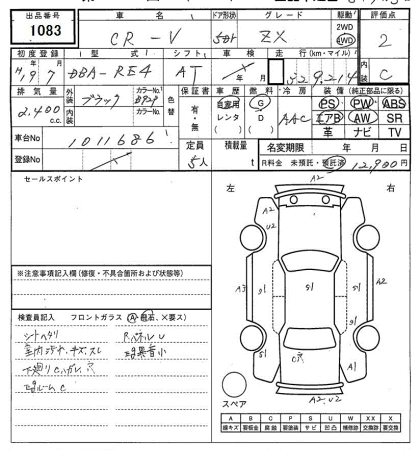 出品番号 車名 ドア形状 グレード 駆動 評価点
1083 CR-V 5DR ZX 2WD 4WD 2
初度登録 型式 シフト 車検 走行(km・マイル) 内装
H 9年7月 DBA-RE4 AT 年 月 C
排気量 外装 ブラック カラーNo. 色替 保証書 車歴 燃料 冷房 装備(純正部品に限る)
2,400 c.c. 内装 カラーNo. 有・無 自家用 レンタ ( ) G D ( ) AAC PS PW ABS
エアB AW SR
革 ナビ TV
車台No 1011686
定員 5人 積載量 t 名変期限 年 月 日
登録No
R料金 未預託・預託済 12,900円
セールスポイント
左 右
A2
A2
U2
A3 91 51 91 A2
51 C穴 A1
※注意事項記入欄(修復・不具合箇所および状態等)
検査員記入 フロントガラス(A・飛石、×要ス)
シートヘタリ RパネルU
室内 ヤケ・キズ・スレ
下廻りC ハガレ 穴
C
スペア
A2.U2
A B C P S U W X XX
線キズ 要板金 腐蝕 要塗装 サビ 凹凸 補修跡 交換跡 要交換